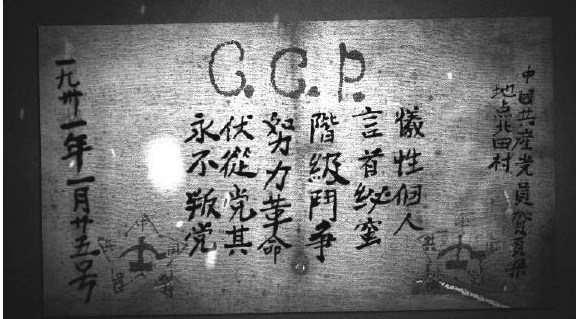 C.C.P.
中國共產党員贺頁朵
地点北田村
犧牲個人
言首秘蜜
階級鬥争
努力革命
伏從党其
永不叛党
一九卅一年一月廿五号